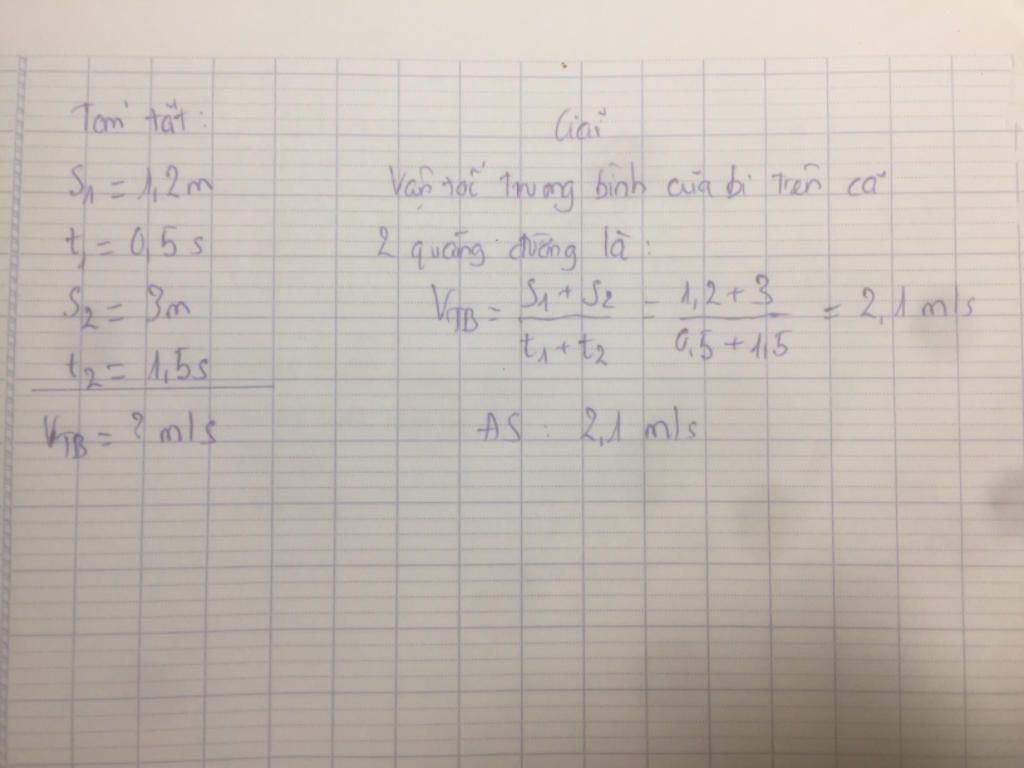 Tóm tắt:
S1 = 1,2m
t1 = 0,5 s
S2 = 3m
t2 = 1,5s
VTB = ? m/s
Giải
Vận tốc trung bình của bi trên cả
2 quãng đường là:
VTB = S1 + S2 / t1 + t2 = 1,2 + 3 / 0,5 + 1,5 = 2,1 m/s
ĐS : 2,1 m/s